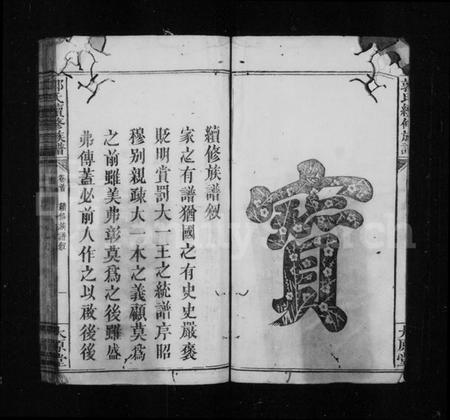 郭氏續修族譜
太原堂
寶
續修族譜敘
家之有譜猶國之有史史嚴褒
貶明賞罰大一王之統譜序昭
穆别親疎大一本之義顧莫為
之前雖美弗彰莫為之後雖盛
弗傳蓋必前人作之以啟後後
郭氏續修族譜
卷首
續修族譜敘
一
太原堂